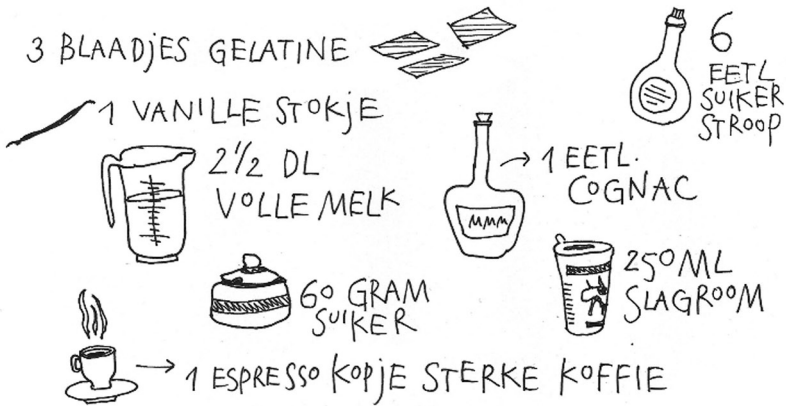 3 BLAADJES GELATINE
6
EETL
SUIKER
STROOP
1 VANILLE STOKJE
2 1/2 DL
VOLLE MELK
1 EETL.
COGNAC
MMM
60 GRAM
SUIKER
250 ML
SLAGROOM
1 ESPRESSO KOPJE STERKE KOFFIE